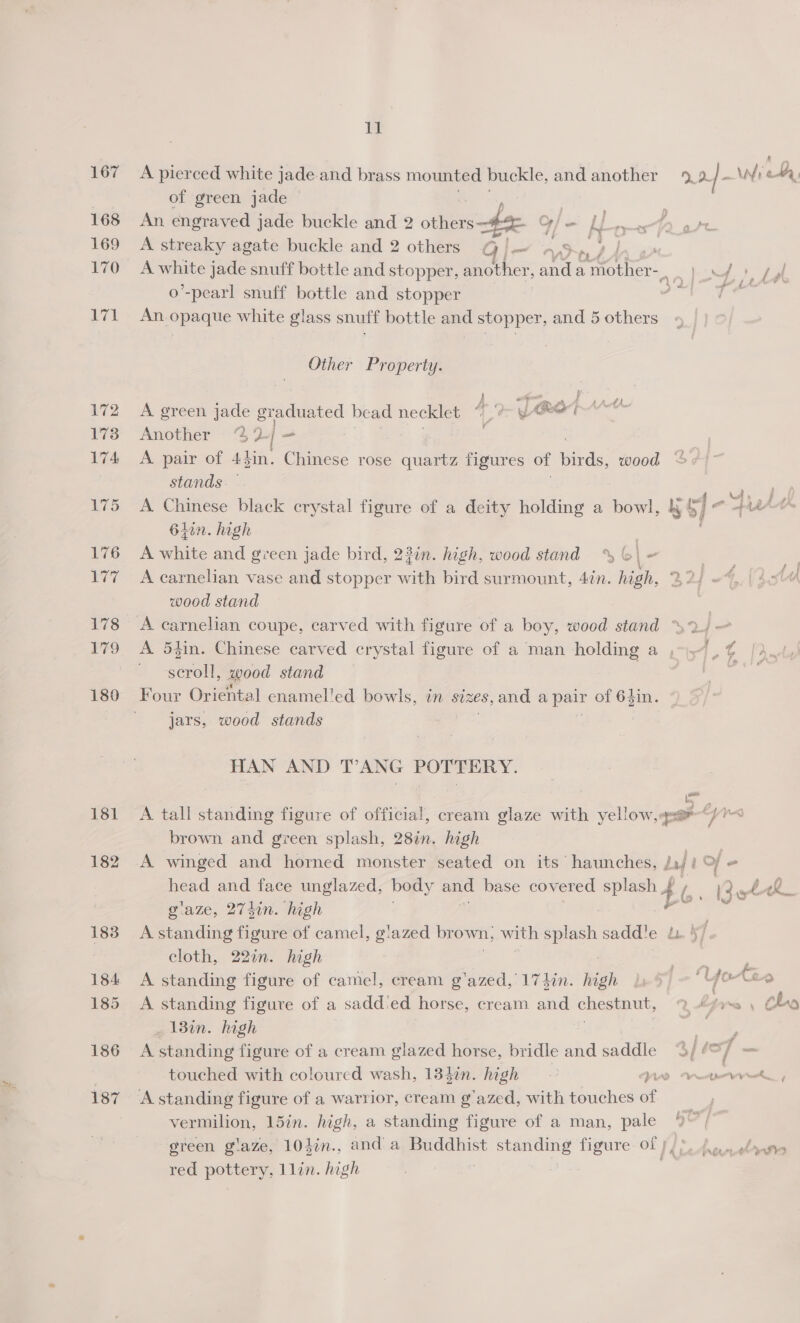 11
167 A pierced white jade and brass mounted buckle, and another
of green jade
168 An engraved jade buckle and 2 others
169 A streaky agate buckle and 2 others
170 A white jade snuff bottle and stopper, another, and a mother-
o'-pearl snuff bottle and stopper
171 An opaque white glass snuff bottle and stopper, and 5 others
Other Property.
172 A green jade graduated bead necklet
173 Another
174 A pair of 4½in. Chinese rose quartz figures of birds, wood
stands
175 A Chinese black crystal figure of a deity holding a bowl,
6½in. high
176 A white and green jade bird, 2¾in. high, wood stand
177 A carnelian vase and stopper with bird surmount, 4in. high,
wood stand
178 A carnelian coupe, carved with figure of a boy, wood stand
179 A 5½in. Chinese carved crystal figure of a man holding a
scroll, wood stand
180 Four Oriental enamelled bowls, in sizes, and a pair of 6½in.
jars, wood stands
HAN AND T'ANG POTTERY.
181 A tall standing figure of official, cream glaze with yellow,
brown and green splash, 28in. high
182 A winged and horned monster seated on its haunches,
head and face unglazed, body and base covered splash
glaze, 27½in. high
183 A standing figure of camel, glazed brown, with splash saddle
cloth, 22in. high
184 A standing figure of camel, cream glazed, 17½in. high
185 A standing figure of a saddled horse, cream and chestnut,
13in. high
186 A standing figure of a cream glazed horse, bridle and saddle
touched with coloured wash, 13½in. high
187 A standing figure of a warrior, cream glazed, with touches of
vermilion, 15in. high, a standing figure of a man, pale
green glaze, 10½in., and a Buddhist standing figure of
red pottery, 11in. high